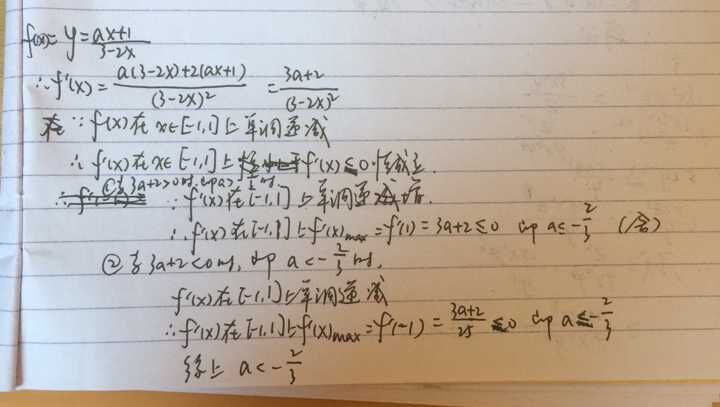 f(x)= y = \frac{ax+1}{3-2x}
∴ f'(x) = \frac{a(3-2x)+2(ax+1)}{(3-2x)^2} = \frac{3a+2}{(3-2x)^2}
∵ f(x) 在 x∈[-1,1] 上单调递减
∴ f'(x) 在 x∈ [-1,1] 上 f'(x) ≤ 0 恒成立.
①当 3a+2>0时, 即a> -\frac{2}{3}时
∵ f'(x) 在 [-1,1] 上单调递增.
∴ f'(x) 在 [-1,1] 上 f'(x)max = f'(1) = 3a+2 ≤ 0 即 a≤ -\frac{2}{3} (舍)
② 当 3a+2<0 时, 即 a < -\frac{2}{3} 时,
f'(x) 在 [-1,1] 上单调递减
∴ f'(x) 在 [-1,1] 上 f'(x)max = f'(-1) = \frac{3a+2}{25} ≤ 0 即 a ≤ -\frac{2}{3}
综上 a < -\frac{2}{3}